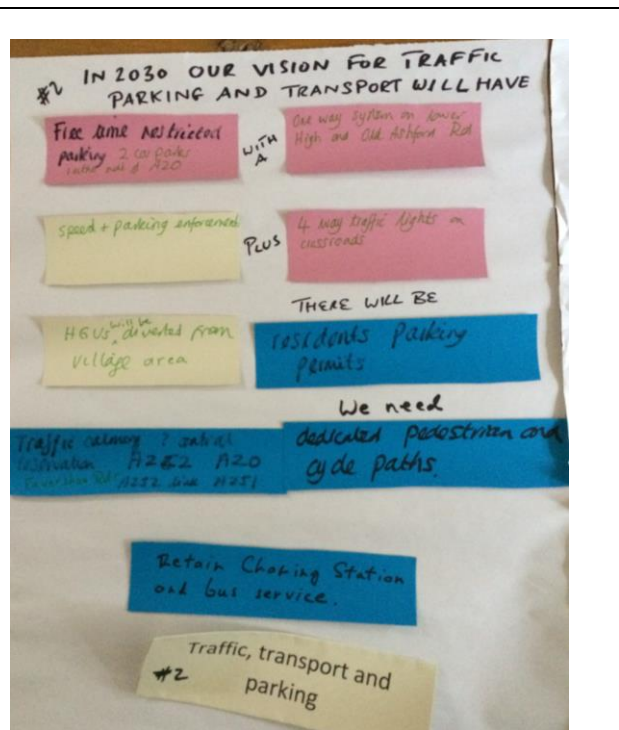 #2 IN 2030 OUR VISION FOR TRAFFIC
PARKING AND TRANSPORT WILL HAVE
Free time restricted
parking 2 car parks
A20
WITH
A
One way system on lower
High and Old Ashford Rd
speed + parking enforcement
PLUS
4 way traffic lights on
crossroads
HGVs will be diverted from
village area
THERE WILL BE
residents parking
permits
We need
Traffic calming ? central
reservation A252 A20
A252 link A251
dedicated pedestrian and
cycle paths.
Retain Charing Station
and bus service.
Traffic, transport and
#2 parking